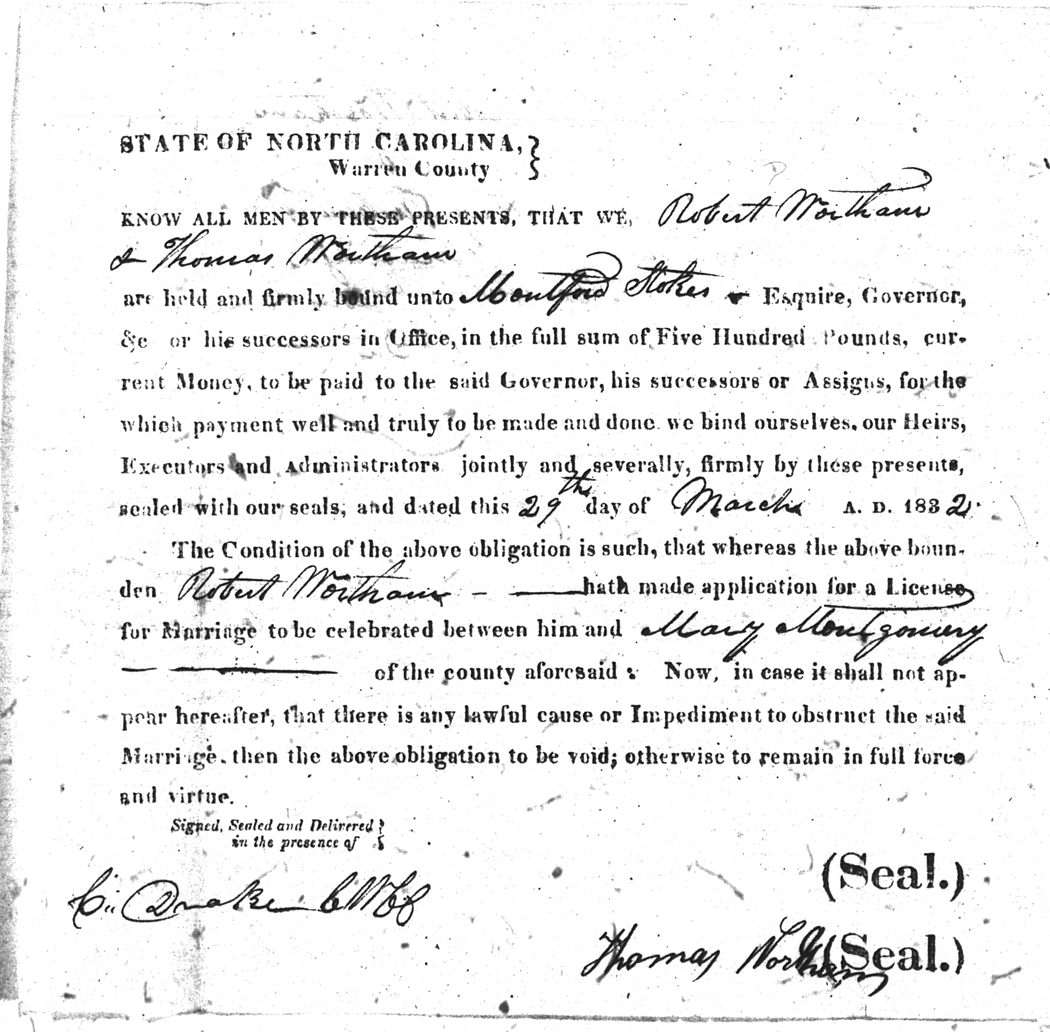 STATE OF NORTH CAROLINA,
Warren County
KNOW ALL MEN BY THESE PRESENTS, THAT WE, Robert Wortham
& Thomas Wortham
are held and firmly bound unto Montford Stokes Esquire, Governor,
&c or his successors in Office, in the full sum of Five Hundred Pounds, cur-
rent Money, to be paid to the said Governor, his successors or Assigns, for the
which payment well and truly to be made and done we bind ourselves, our Heirs,
Executors and Administrators jointly and severally, firmly by these presents,
sealed with our seals, and dated this 29th day of March A. D. 1832.
The Condition of the above obligation is such, that whereas the above boun-
den Robert Wortham hath made application for a License
for Marriage to be celebrated between him and Mary Montgomery
of the county aforesaid: Now, in case it shall not ap-
pear hereafter, that there is any lawful cause or Impediment to obstruct the said
Marriage, then the above obligation to be void; otherwise to remain in full force
and virtue.
Signed, Sealed and Delivered
in the presence of
(Seal.)
Drake
Thomas Wortham (Seal.)